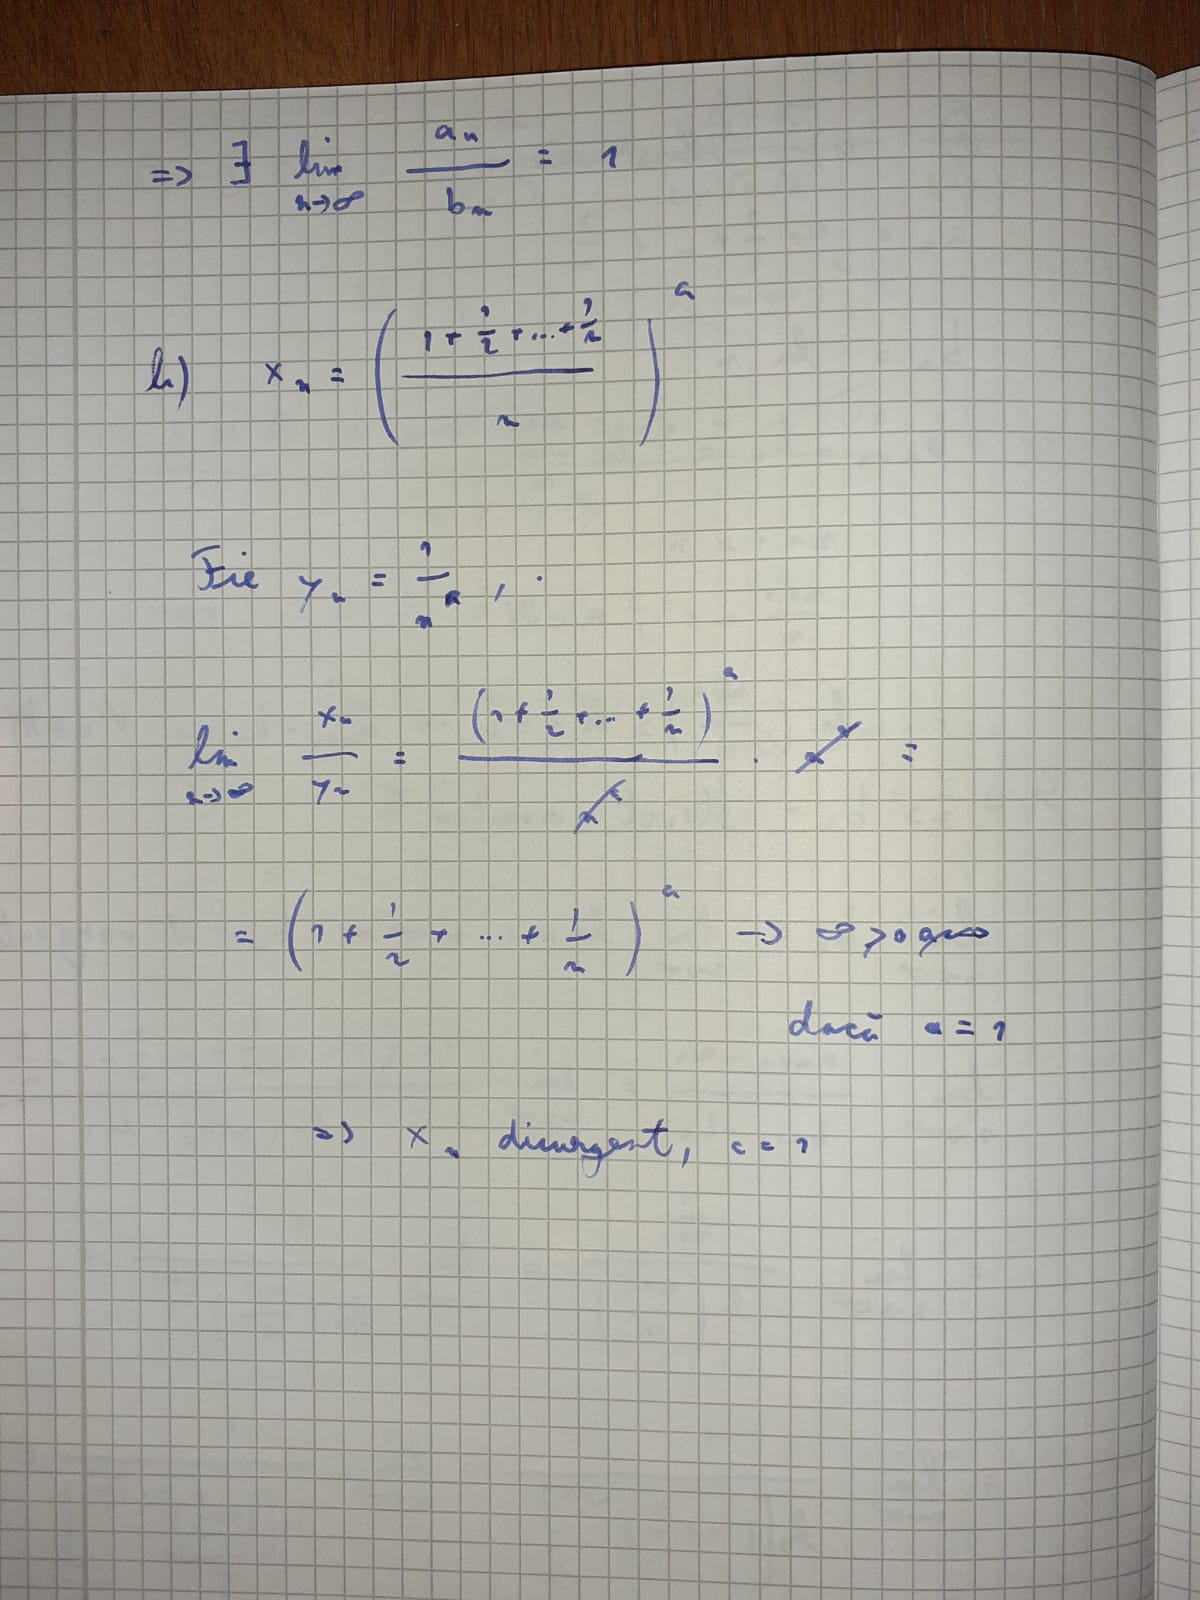 => ∃ lim n→∞ an/bn = 1
b) xn = ((1 + 1/2 + ... + 1/n)/n)^a
Fie yn = 1/n^a , .
lim n→∞ xn/yn = (1 + 1/2 + ... + 1/n)^a / n^a · n^a =
= (1 + 1/2 + ... + 1/n)^a → ∞ > 0
dacă a = 1
=> xn divergent, a = 1